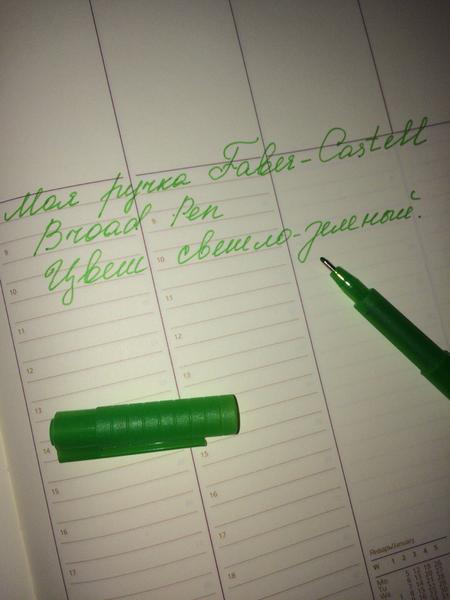 Моя ручка Faber-Castell
Broad Pen
Цвет светло-зеленый.
9
10
11
12
13
14
15
16
17
9
10
11
12
15
16
17
18
Январь/January
W 1 2 3 4 5
Mo
Tu
We